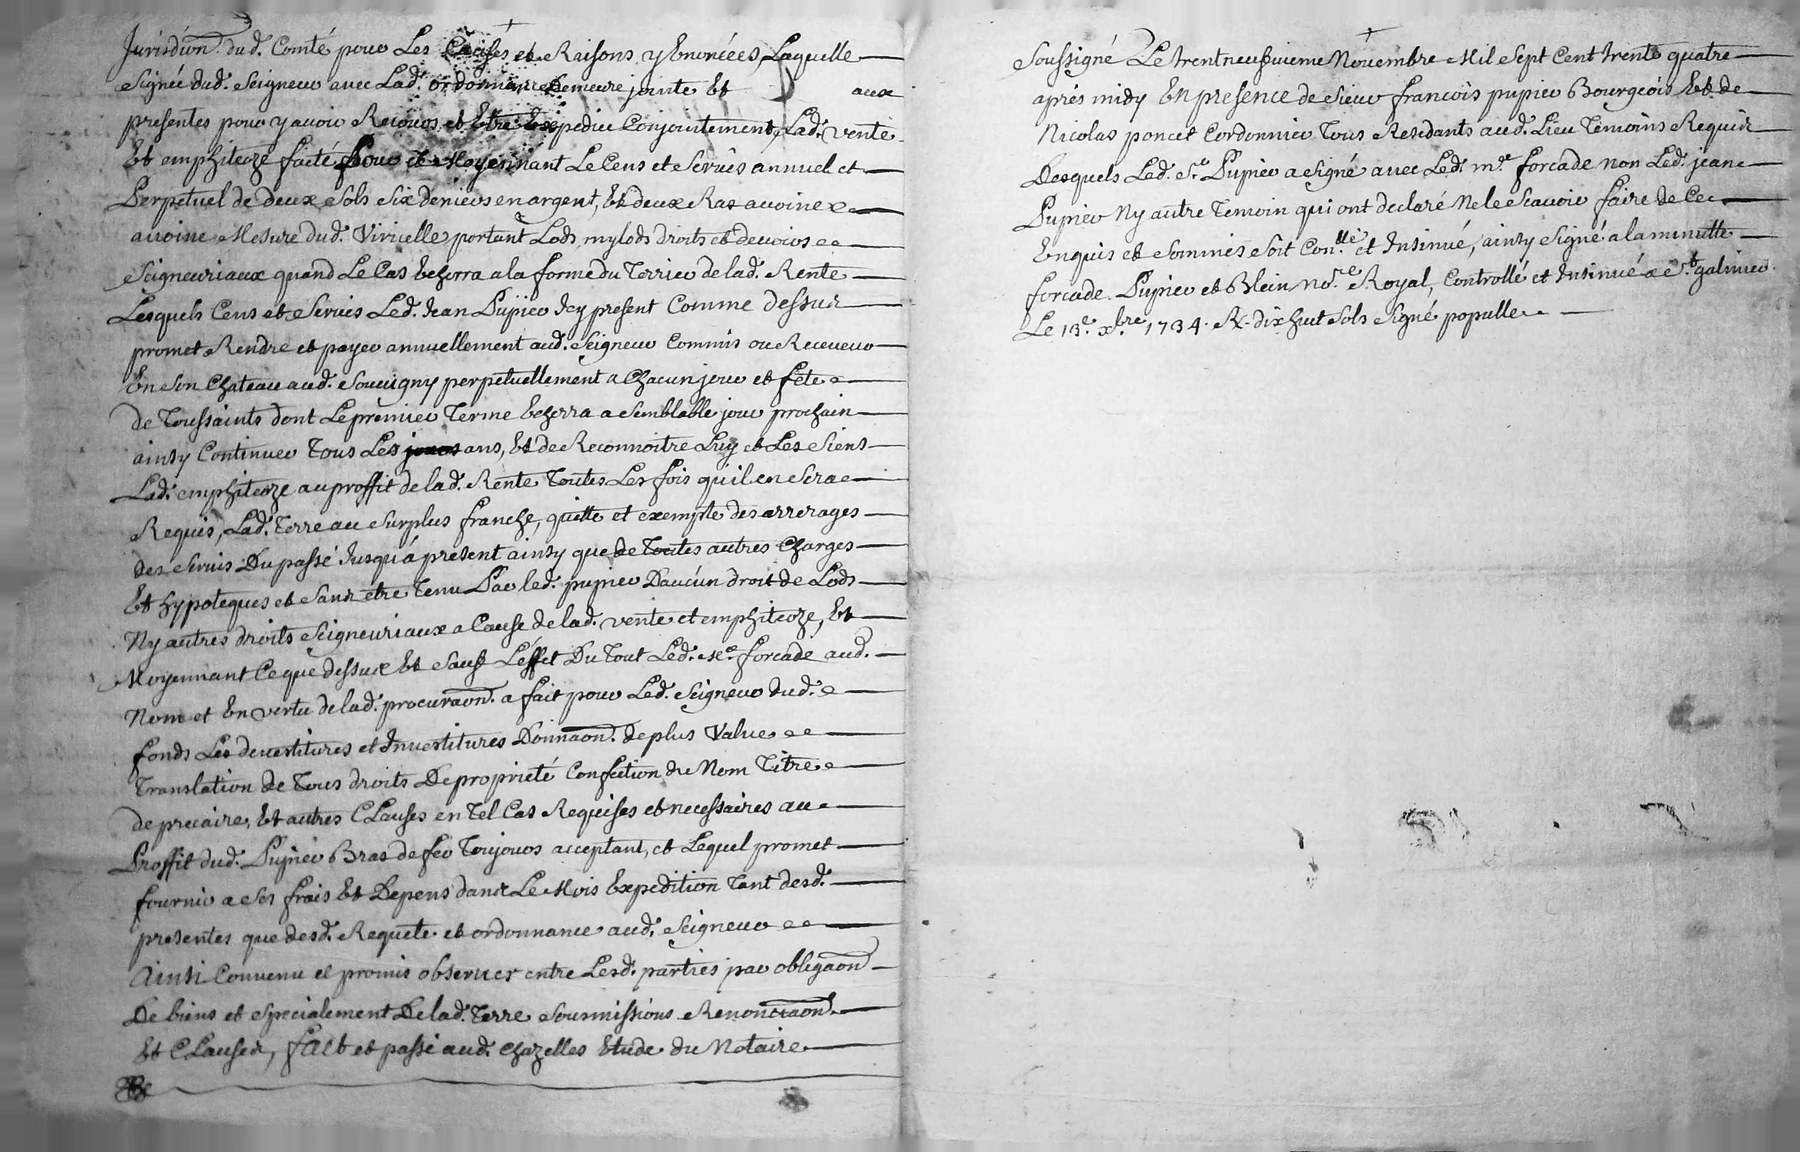 Jurisdion. dud. Comté pour Les Causes et Raisons y Enoncées, Laquelle
Signée dud. Seigneur avec Lad. ordonnance Demeure jointe Et aux
presentes pour y avoir Recours et Etre Expediée Conjointement, Lad. vente
Et emphiteoze faite pour et Moyennant Le Cens et Servis annuel et
Perpetuel de deux Sols Six deniers en argent, Et deux Ras avoine
avoine Mesure dud. Viricelle portant Lods, mylods droits et devoirs
Seigneuriaux quand Le Cas Echerra a la forme du Terrier de lad. Rente
Lesquels Cens et Servis Led. Jean Pupier Icy present Comme dessus
promet Rendre et payer annuellement aud. Seigneur Commis ou Receveur
En Son Chateau aud. Souvigny perpetuellement a Chacun jour et fete
de Toussaints dont Le premier Terme Echerra a Semblable jour prochain
ainsy Continuer Tous Les ans, Et de Reconnoitre Luy et Les Siens
Lad. emphiteoze au proffit de lad. Rente Toutes Les fois qu'il en Sera
Requis, Lad. Terre au Surplus franche, quitte et exempte des arrerages
des Servis Du passé Jusqu'á present ainsy que de Toutes autres Charges
Et hypoteques et Sans etre Tenu Par led. pupier D'aucun droit de Lods
Ny autres droits Seigneuriaux a Cause de lad. vente et emphiteoze, Et
Moyennant Ce que dessus Et Sauf L'effet Du Tout Led. Me. forcade aud.
Nom et En vertu de lad. procuraon. a fait pour Led. Seigneur dud.
fonds Les devestitures et Investitures Donnaon. de plus Value
Translation de Tous droits De proprieté Confection du Nom Titre
de precaire, Et autres Clauses en Tel Cas Requises et necessaires au
Proffit dud. Pupier Bras de fer Toujours acceptant, et Lequel promet
fournir a Ses frais Et Depens dans Le Mois Expedition Tant desd.
presentes que desd. Requete et ordonnance aud. Seigneur
Ainsi Convenu et promis observer entre Lesd. parties par obligaon
De biens et Specialement De lad. Terre Soumissions Renonciaon.
Et Clauses, fait et passé aud. Chazelles Etude du Notaire
Soussigné Le trent neufvieme Novembre Mil Sept Cent trente quatre
aprés midy En presence de Sieur francois pupier Bourgeois Et de
Nicolas poncet Cordonnier Tous Residants aud. Lieu Temoins Requis
Desquels Led. Sr. Pupier a Signé avec Led. me. forcade non Led. jean
Pupier Ny autre Temoin qui ont declaré Ne le Scavoir faire de Ce
Enquis et Sommés Soit Conlle. et Insinué, ainsy Signé a la minutte
forcade. Pupier et Blein nore. Royal, Controllé et Insinué a St. galmier
Le 13e. xbre. 1734. R. dix huit Sols Signé populle